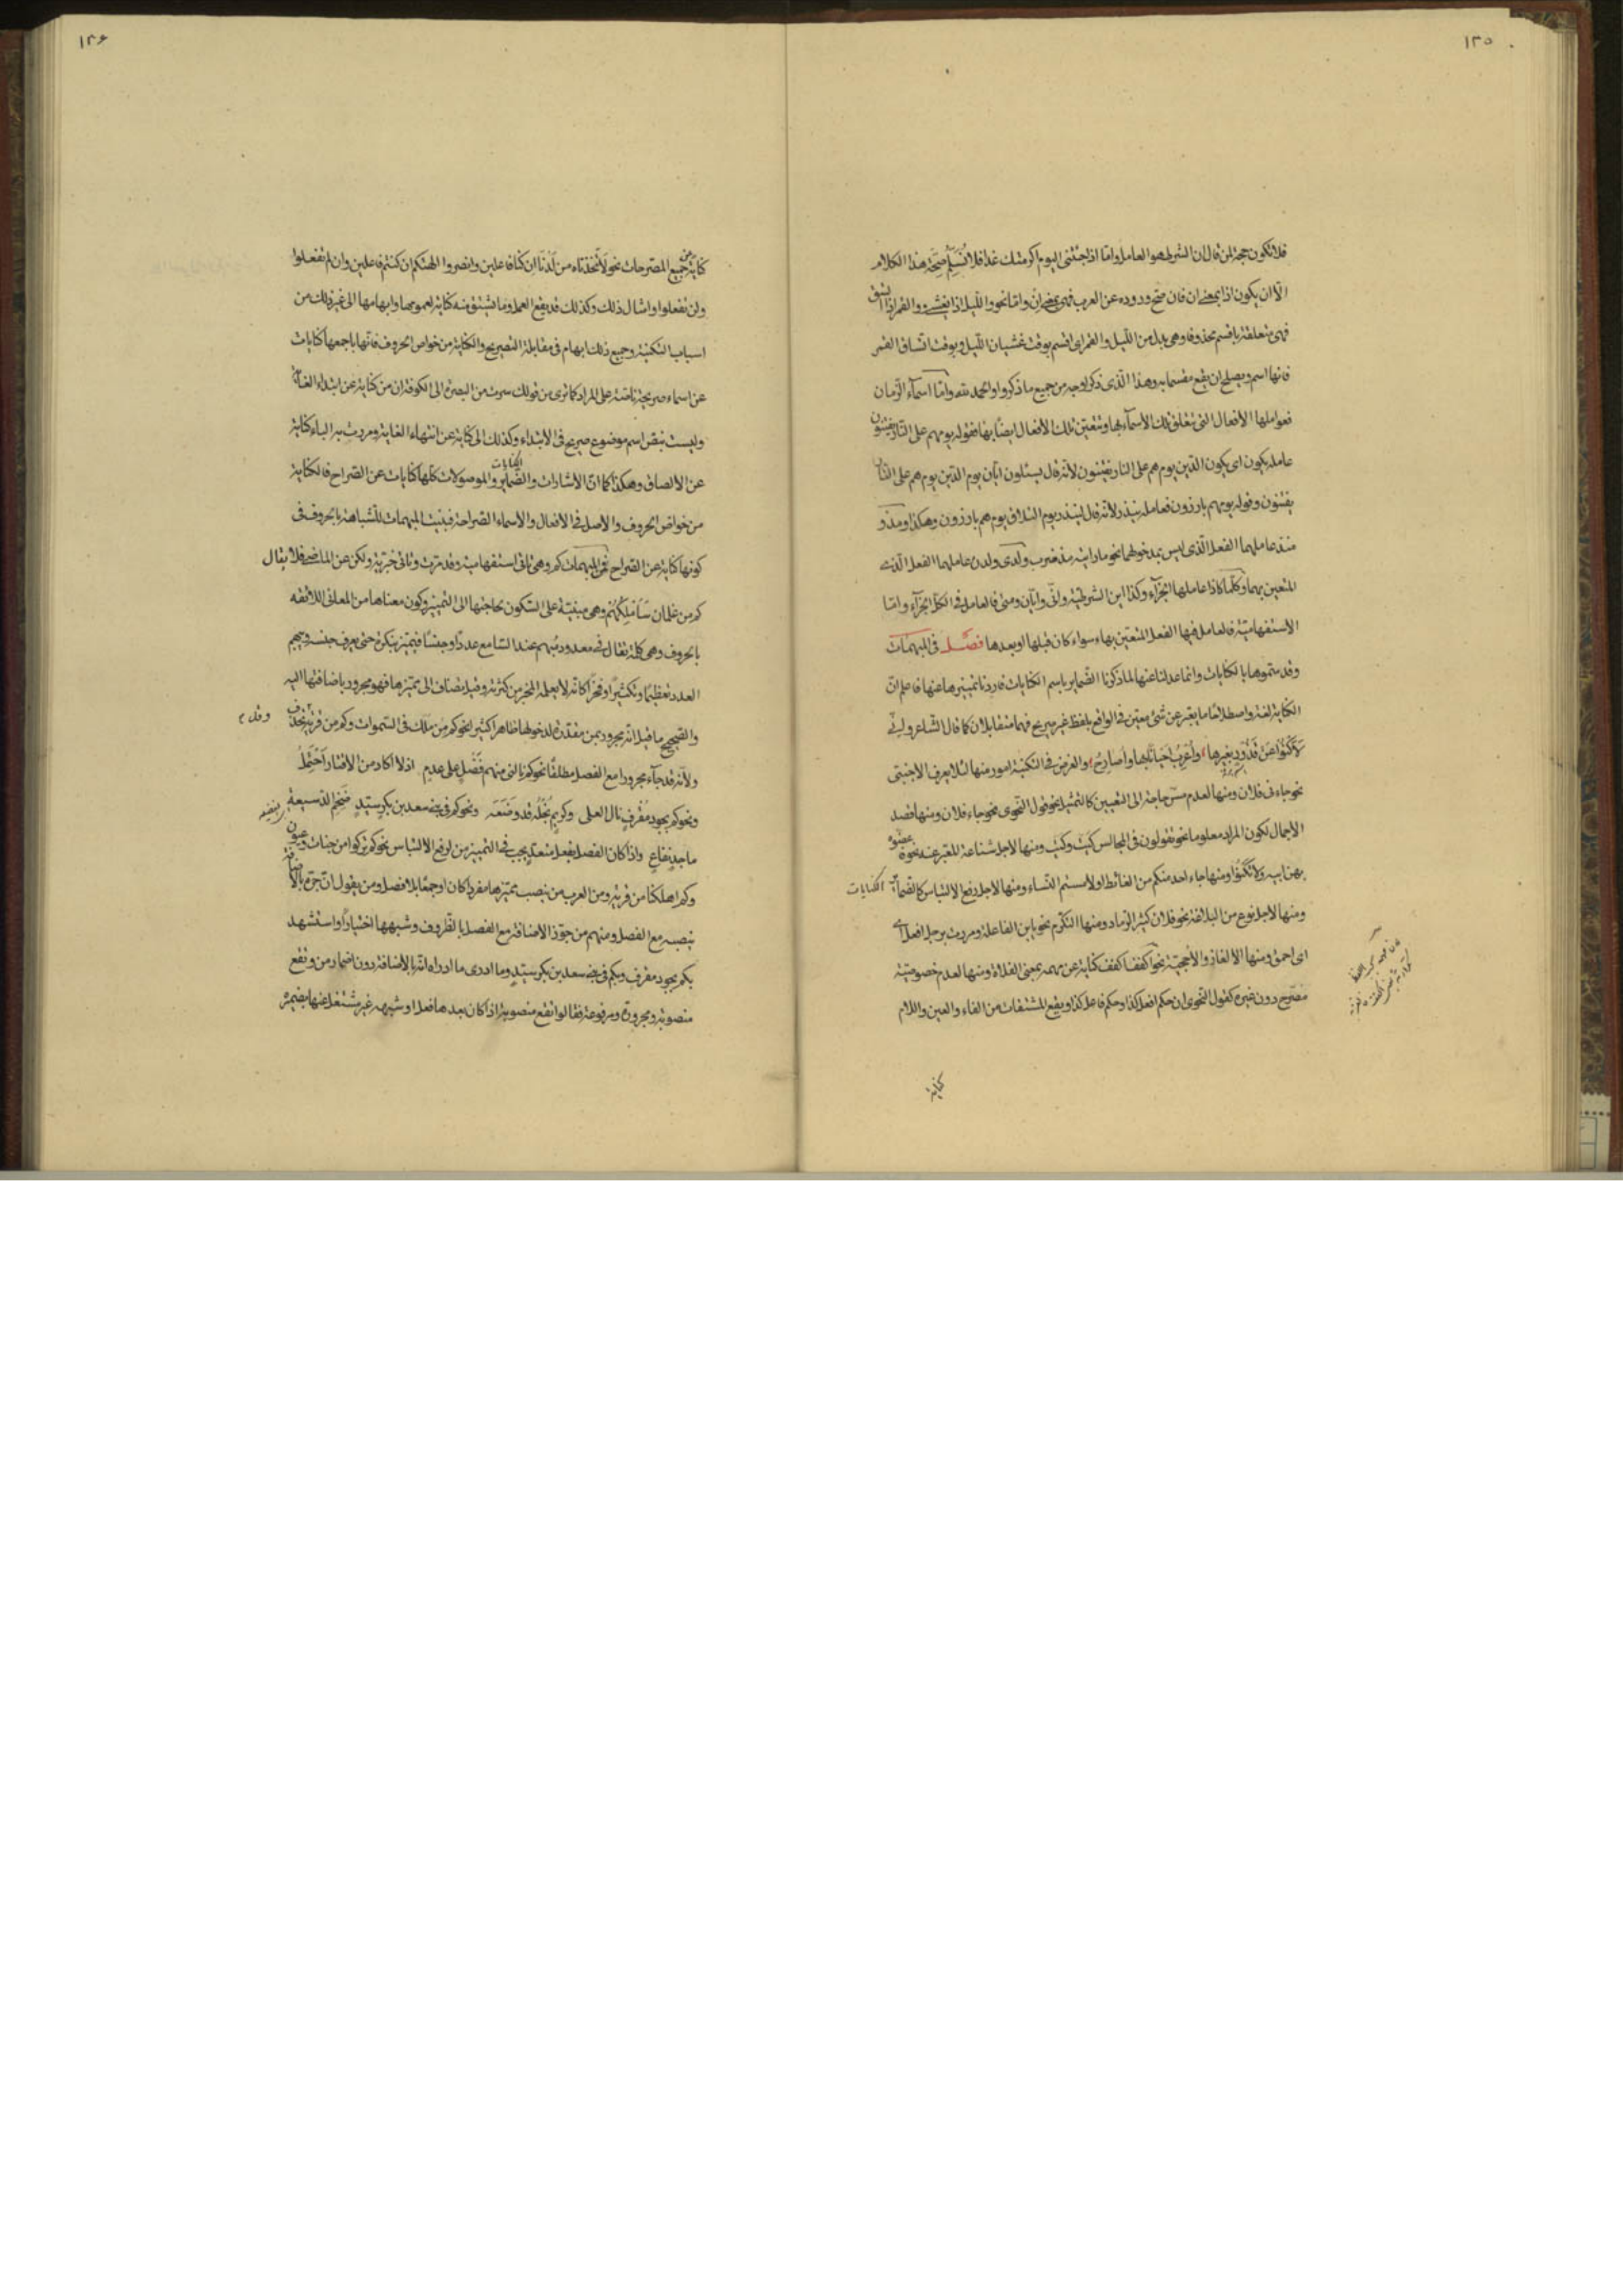 ١٣٥
فلا تكون حجة لمن قال ان الشرط هو العامل واما اذا جئتنى اليوم اكرمتك غدا فلا نُسَلِّم صحّة هذا الكلام
الّا ان يكون اذا بمعنى ان فان صحّ وروده عن العرب فهى بمعنى ان واما نحو والليل اذا يغشى والقمر اذا اتسق
فهى متعلقة باقسم محذوفا وهى بدل من الليل والقمر اى اقسم بوقت غشيان الليل وبوقت اتساق القمر
فانها اسم ويصلح ان يقع مقسما به وهذا الّذى ذكر اوجه من جميع ما ذكروا والحمد لله وامّا اسمآء الزمان
فعواملها الافعال التى يتعلق تلك الاسمآء بها وتتعين تلك الافعال ايضًا بها فقوله يوم هم على النار يفتنون
عامله يكون اى يكون الدّين يوم هم على النار يفتنون لانّه قال يسئلون ايّان يوم الدّين يوم هم على النار
يفتنون وقوله يوم هم بارزون فعامله ينذر لانّه قال لينذر يوم التلاق يوم هم بارزون وهكذا ومذ و
منذ عاملهما الفعل الّذى ليس بمدخولهما نحو ما رايته مذ غرب ولدى ولدن عاملهما الفعل الّذى
المتعين بهما وكلّما كاذا عاملها الجزآء وكذا اين الشرطيّة وانّى وايّان ومتى فالعامل فى الكلّ الجزآء وامّا
الاستفهاميّة فالعامل فيها الفعل المتعيّن بها سواء كان قبلها او بعدها فصل فى المبهمات
وقد سمّوها بالكنايات وانما عدلنا عنها لما ذكرنا الضّماير باسم الكنايات فاردنا تمييزها عنها فاعلم انّ
الكناية لغة واصطلاحًا ما يعبّر عن شئ معيّن فى الواقع بلفظ غير صريح فهما متقابلان كما قال الشاعر وانّى
لَاَكْنُوا عَنْ قَذُورَ بغيرها وَاُعْرِبُ اَحْيَانًا بها واُصَارِحُ والغرض فى التكنية امور منها لئلا يعرف الاجنبى
نحو جاءنى فلان ومنها لعدم مسّ حاجة الى التعيين كالتمثيل نحو قول النحوى نحو جاء فلان ومنها قصد
الاجمال لكون المراد معلوما نحو تقولون فى المجالس كيت وكيت ومنها لاجل شناعة المعبر عنه نحو فاعضّوه
بهن ابيه ولا تكنُوا ومنها جاء احد منكم من الغائط او لامستم النّساء ومنها لاجل رفع الالتباس كالضّماير
الكنايات
ومنها لاجل نوع من البلاغة نحو فلان كثير الرّماد ومنها التكرّم نحو يابن الفاعلة ومررت برجل افعل اى
اى احمق ومنها الالغاز والاحجيّة نحو اكفف اكفف كناية عن مهمه بمعنى الفلاة ومنها لعدم خصوصيّة
مصرّح دون غيره كقول النحوى ان حكم افعل كذا وحكم فاعل كذا ويقع المشتقات من الفاء والعين واللام
كناية
١٣۶
كناية عن جميع المصرحات نحو لاتّخذناه من لَدُنّا ان كنّا فاعلين وانصروا الهتكم ان كنتم فاعلين وان لم تفعلوا
ولن تفعلوا وامثال ذلك وكذلك قد يقع العمل وما يشتق منه كناية لعمومها وابهامها الى غير ذلك من
اسباب التكنية وجميع ذلك ابهام فى مقابلة التصريح والكناية من خواص الحروف فانّها باجمعها كنايات
عن اسماء صريحة ناصّة على المراد كما ترى من قولك سرت من البصرة الى الكوفة ان من كناية عن ابتداء الغاية
وليست بنصّ اسم موضوع صريح فى الابتداء وكذلك الى كناية عن انتهاء الغاية ومررت به الباء كناية
عن الالصاق وهكذا كما انّ الاشارات والضّماير والموصولات كلّها كنايات عن الصّراح فالكناية
من خواصّ الحروف والاصل فى الافعال والاسماء الصّراحة فبنيت المبهمات للشباهة بالحروف فى
كونها كناية عن الصّراح فمن المبهمات كم وهى تاتى استفهاميّة وقد مرّت وتاتى خبريّة ولكن عن الماضى فلا يقال
كم من غلمان سَاَمْلِكُهُم وهى مبنيّة على السّكون لحاجتها الى التمييز وكون معناها من المعانى اللائقة
بالحروف وهى كلمة تقال فى معدود مُبهم عند السّامع عددًا وجنسًا فيميّز بنكرة حتى يعرف جنسه ويبهم
العدد تعظيمًا وتكثيرًا وفخرًا كانّه لا يعلمه المخبر من كثرته وقيل تضاف الى مميّزها فهو مجرور باضافتها اليه
والصّحيح ما قيل انّه مجرور بمن مقدّرة لدخولها ظاهرا كثيرا نحو كم من ملك فى السّموات وكم من قرية وقد تحذف
ولانّه قد جآء مجرورا مع الفصل مطلقًا نحو كم نالنى منهم فَضْلٍ على عدم اذ لا اكاد من الاقتار اَحْتَمِلُ
ونحو كم بجود مُقْرِفٍ نال العلى وكريمٍ بُخْلُه قد وَضَعَه ونحو كم فى بنى سعد بن بكر سيّدٍ ضَخْمِ الدّسيعة
ماجدٍ نفّاعٍ واذا كان الفصل بفعل متعدّ يجب فى التمييز من لرفع الالتباس نحو كم تركوا من جنات وعيون
وكم اهلكنا من قرية ومن العرب من ينصب مميّزها مفردا كان او جمعًا بلا فصل ومن يقول انّ جرّه بالاضافة
ينصبه مع الفصل ومنهم من جوّز الاضافة مع الفصل بالظّروف وشبهها اختيارًا واستشهد
بكم بجود مقرف وبكم فى بنى سعد بن بكر سيّدٍ وما ادرى ما ادراه انّه بالاضافة دون اضمار من وتقع
منصوبة ومجرورة ومرفوعة فقالوا تقع منصوبة اذا كان بعدها فعل او شبهه غير مشتغل عنها بضميره